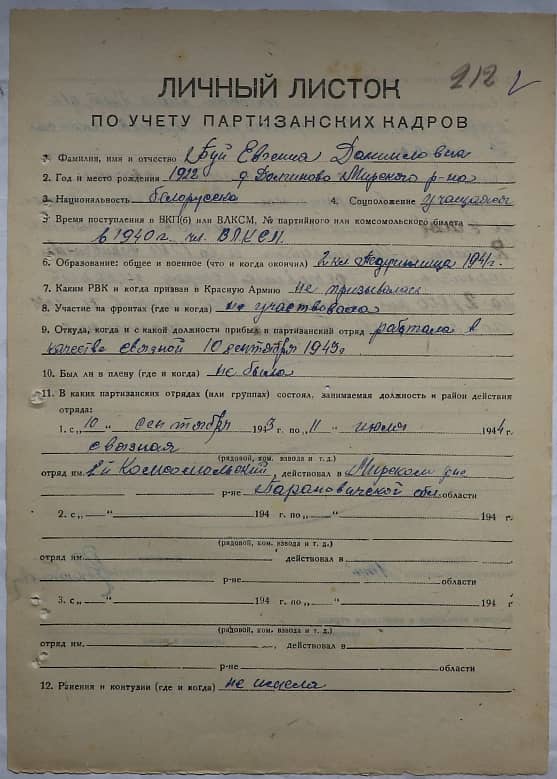 212 V
ЛИЧНЫЙ ЛИСТОК
ПО УЧЕТУ ПАРТИЗАНСКИХ КАДРОВ
1. Фамилия, имя и отчество Буй Евгения Даниловна
2. Год и место рождения 1922 д Долиново Мирского р-на
3. Национальность белорусска 4. Соцположение учащаяся
5. Время поступления в ВКП(б) или ВЛКСМ, № партийного или комсомольского билета
в 1940 г. чл. ВЛКСМ.
6. Образование: общее и военное (что и когда окончил) 2 кл Педучилища 1941 г.
7. Каким РВК и когда призван в Красную Армию не призывалась
8. Участие на фронтах (где и когда) не участвовала
9. Откуда, когда и с какой должности прибыл в партизанский отряд работала в
качестве связной 10 сентября 1943 г
10. Был ли в плену (где и когда) не была
11. В каких партизанских отрядах (или группах) состоял, занимаемая должность и район действия
отряда:
1. с „10 “ сентября 1943 г. по „11 “ июля 1944 г.
связная
(рядовой, ком. взвода и т. д.)
отряд им. 2й Комсомольский, действовал в Мирском
р-не Барановичской обл. области
2. с „ “ 194 г. по „ “ 194 г.
(рядовой, ком. взвода и т. д.)
отряд им. действовал в
р-не области
3. с „ “ 194 г. по „ “ 194 г
(рядовой, ком. взвода и т. д.)
отряд им. , действовал в
р-не области
12. Ранения и контузии (где и когда) не имела